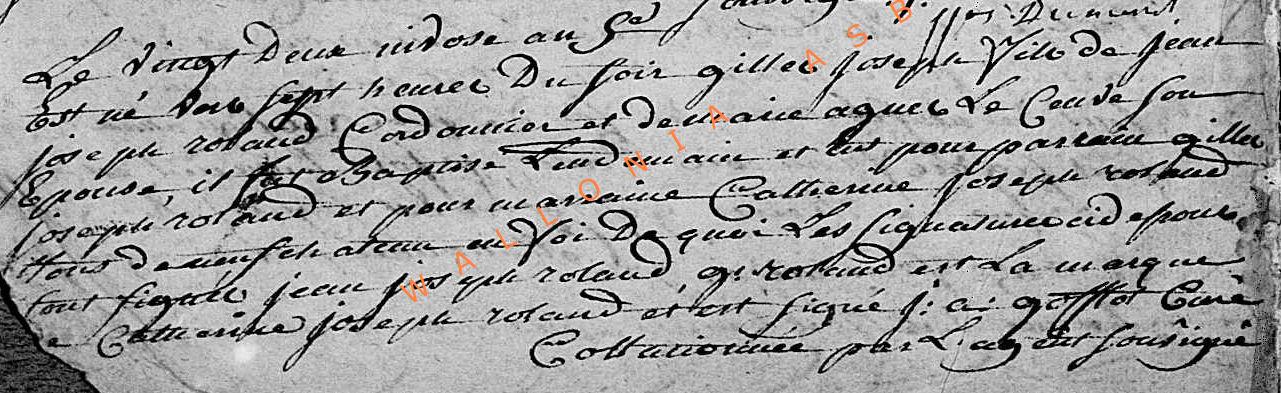 Dumont
Le vingt Deux nivose an 5e
Est né vers sept heures Du soir gilles joseph fils de jean
joseph roland Cordonnier et de marie agnes Le Ceuve son
Epouse, il fut Baptise Lendemain et eut pour parrain gilles
joseph roland et pour marraine Catherine joseph roland
tous de neufchateau en foi De quoi Les signatures cidessous
sont signés jean joseph roland g: roland est La marque
de Catherine joseph roland et est signé j: a: gofflot Curé
Collationnée par L'agent sousigné
WALLONIA ASB